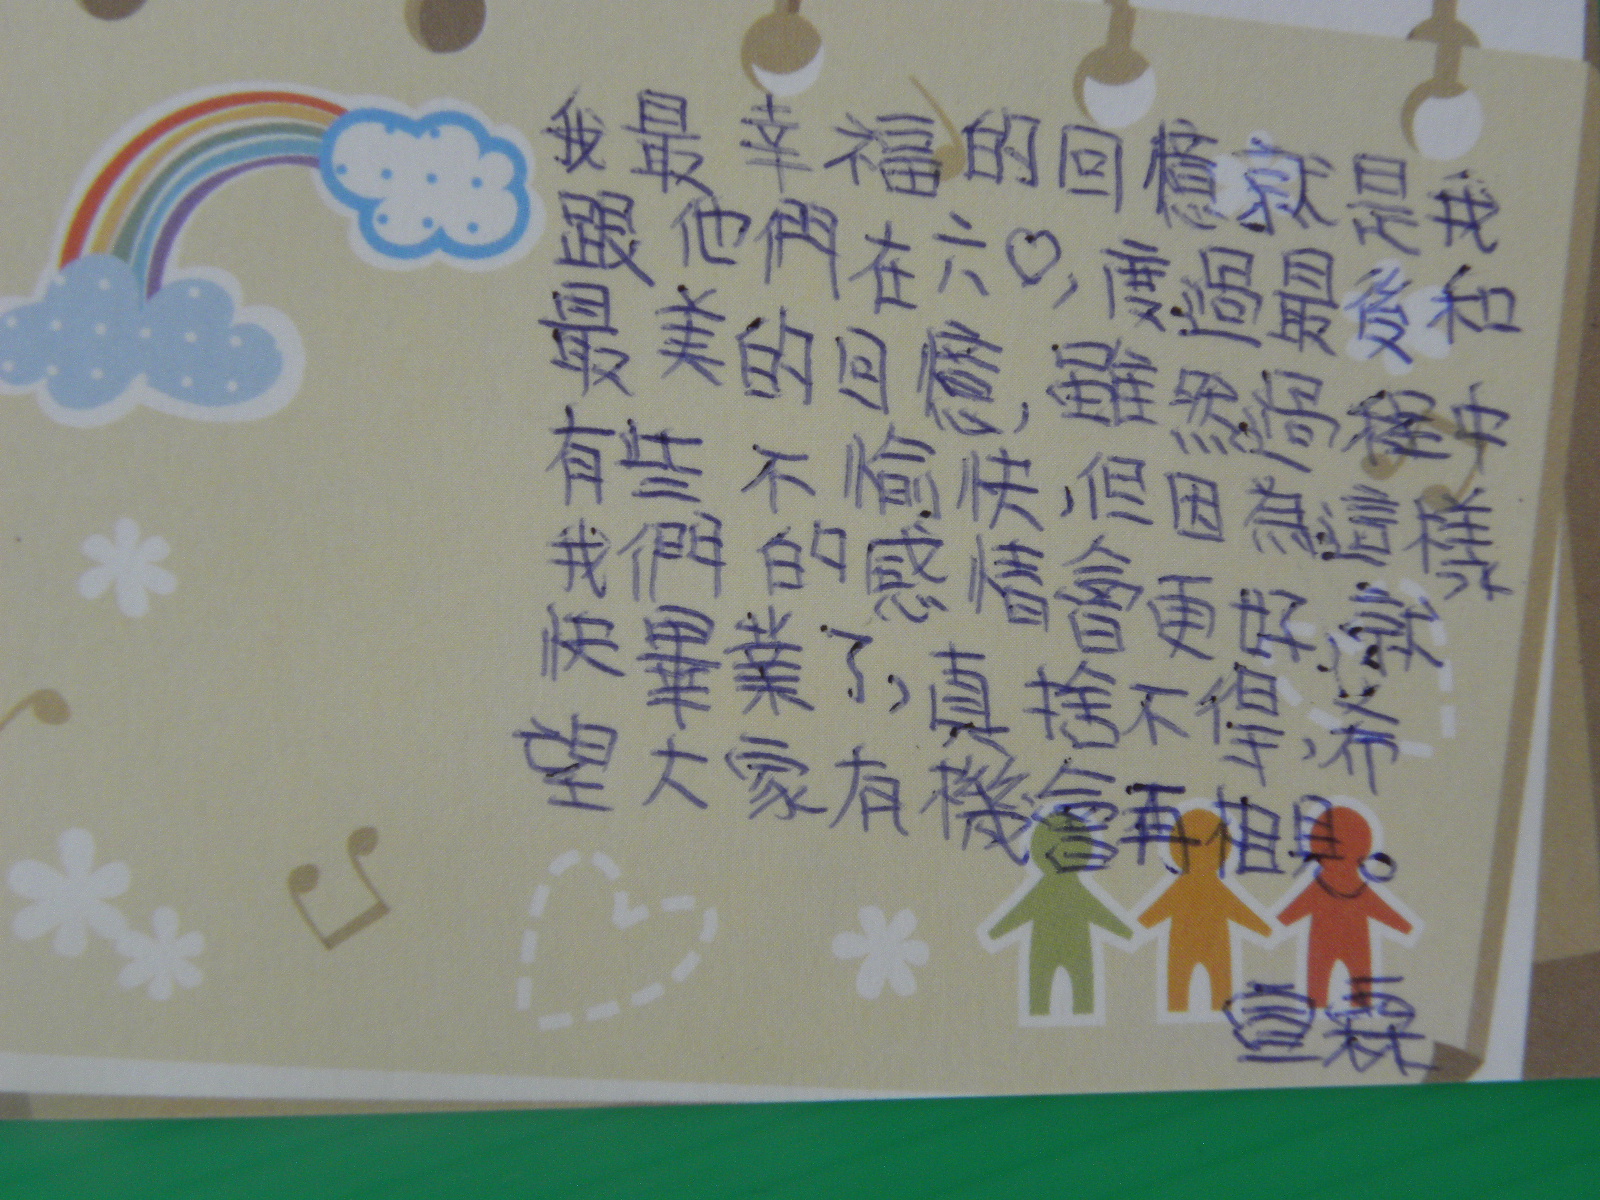 我最幸福的回憶就是我
跟他們在六♡,度過最後和
最美的回憶,雖然過程中
有些不愉快,但因為這樣
我們的感情會更好,就
快畢業了,真捨不得,希
望大家有機會再相見。
宣霖